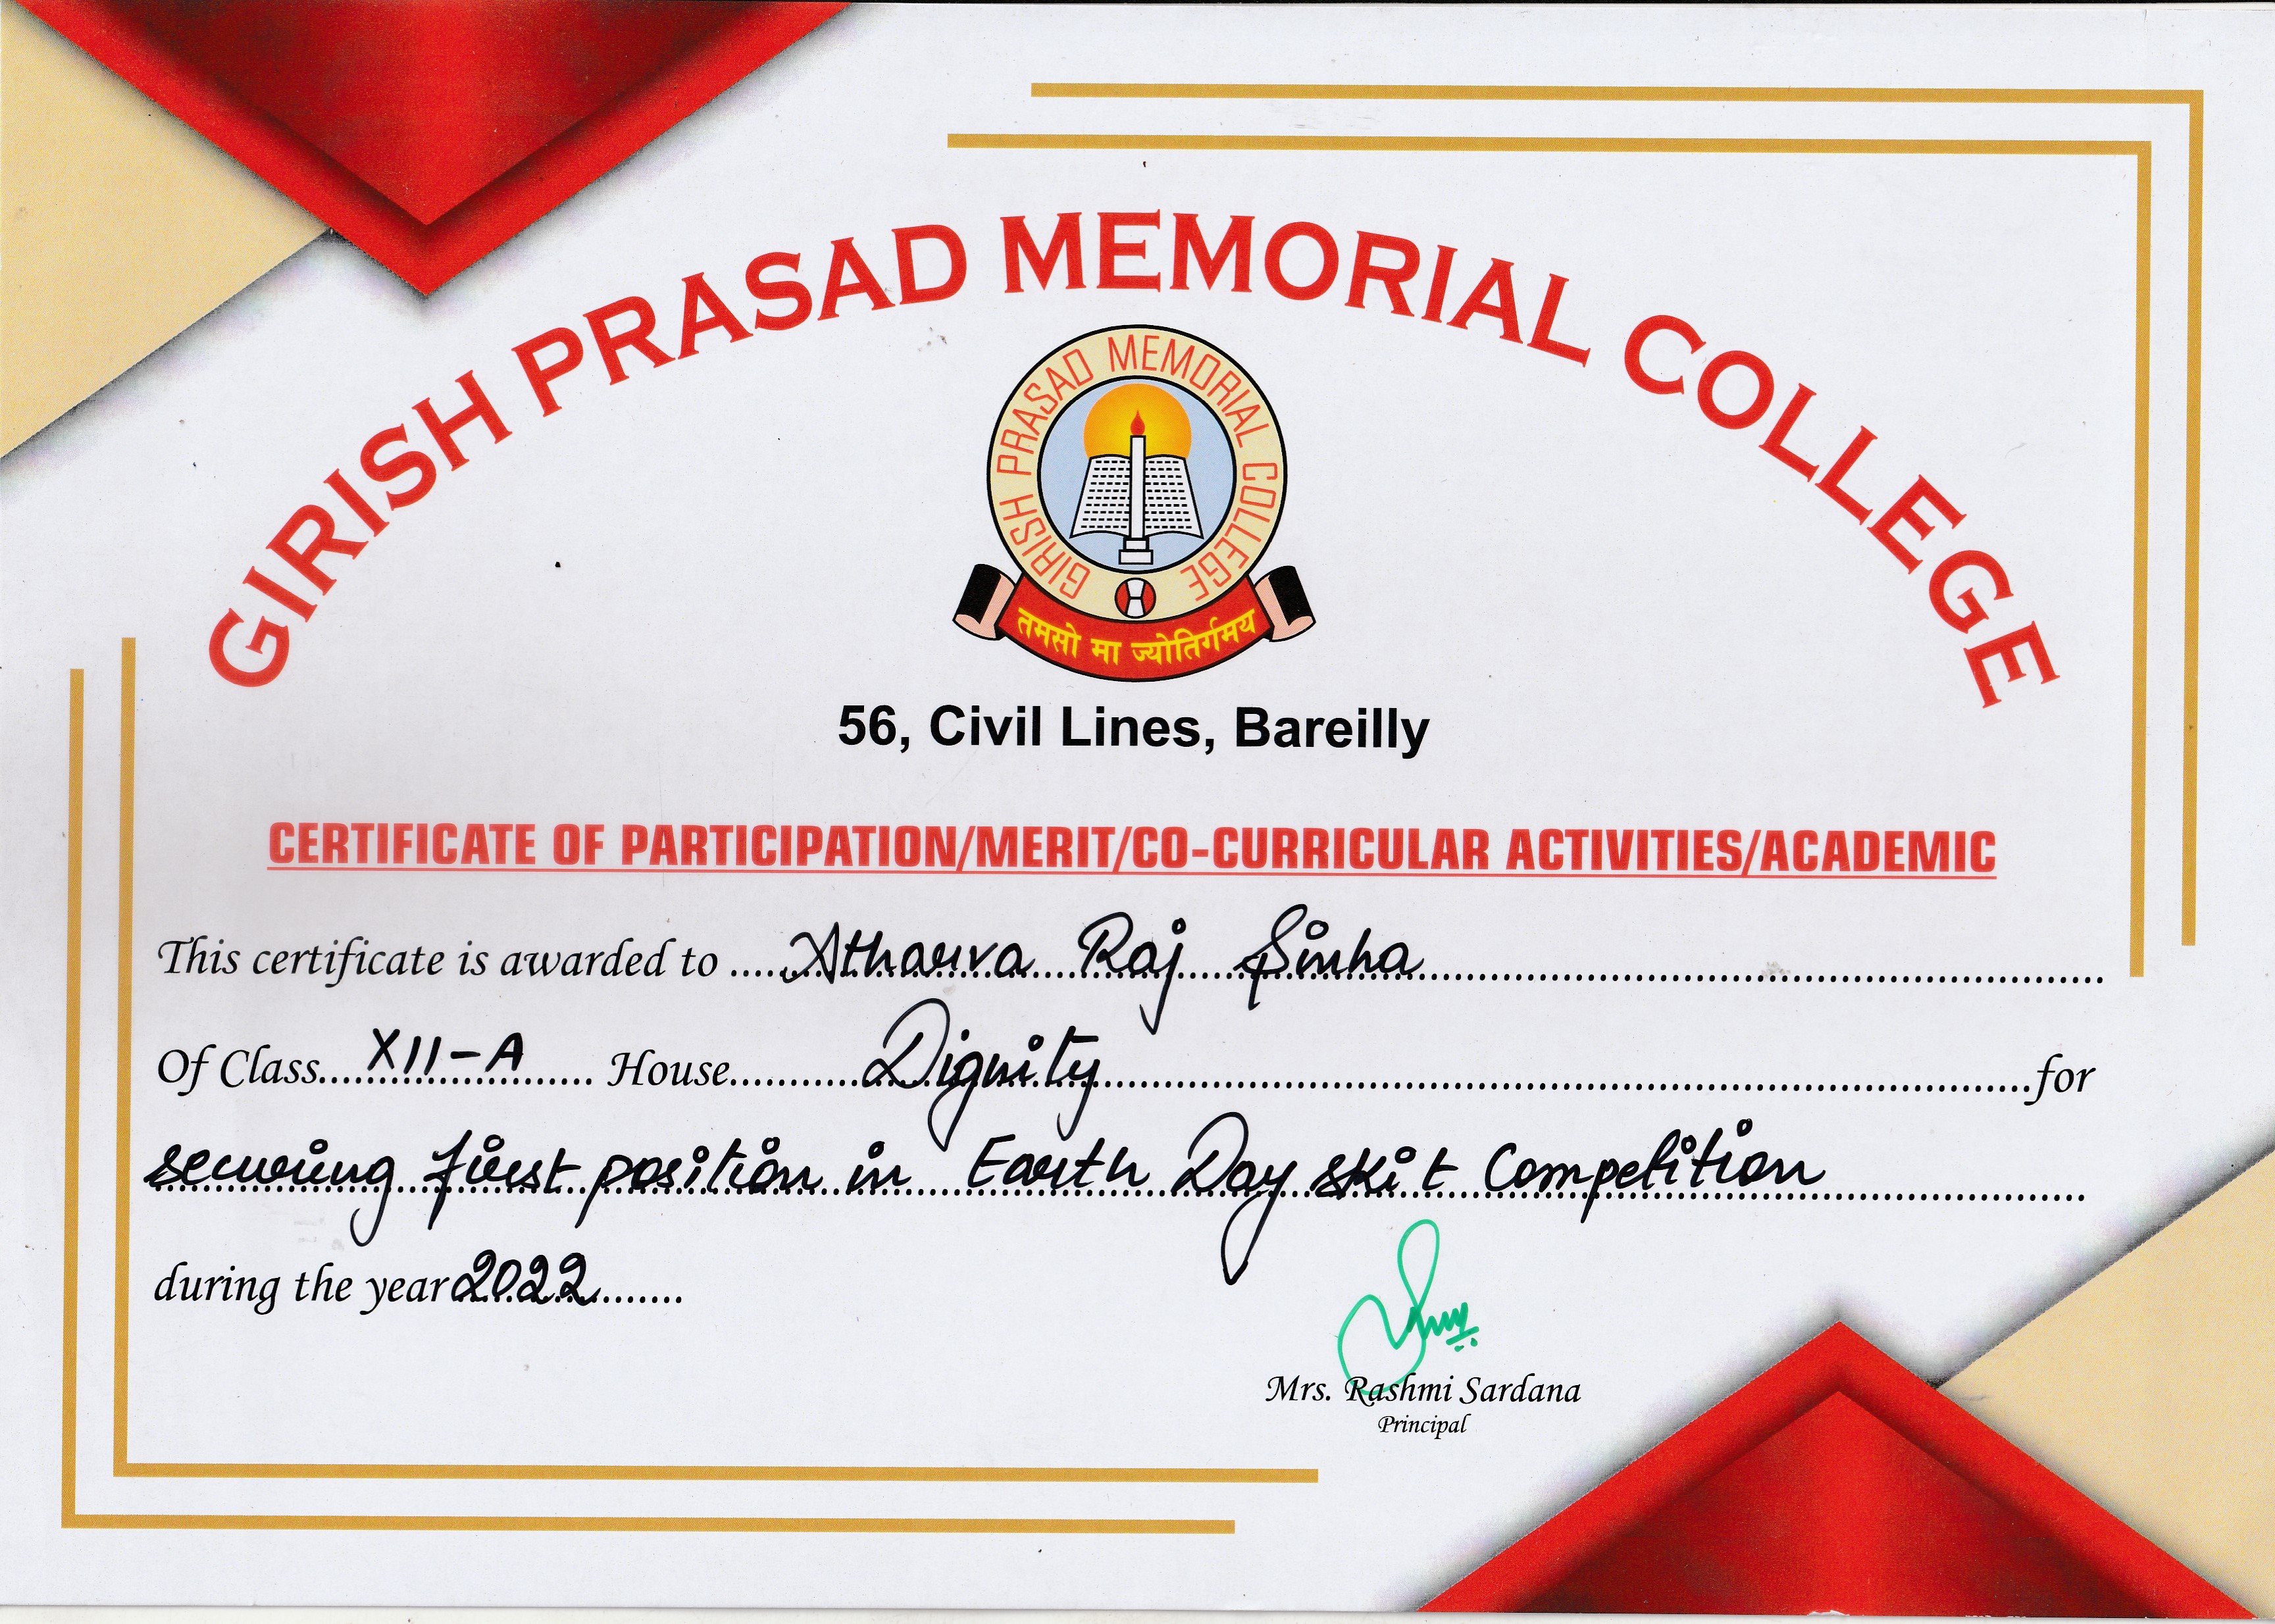 GIRISH PRASAD MEMORIAL COLLEGE
GIRISH PRASAD MEMORIAL COLLEGE
तमसो मा ज्योतिर्गमय
56, Civil Lines, Bareilly
CERTIFICATE OF PARTICIPATION/MERIT/CO-CURRICULAR ACTIVITIES/ACADEMIC
This certificate is awarded to Atharva Raj Sinha
Of Class XII-A House Dignity for
securing first position in Earth Day skit Competition
during the year 2022
Mrs. Rashmi Sardana
Principal